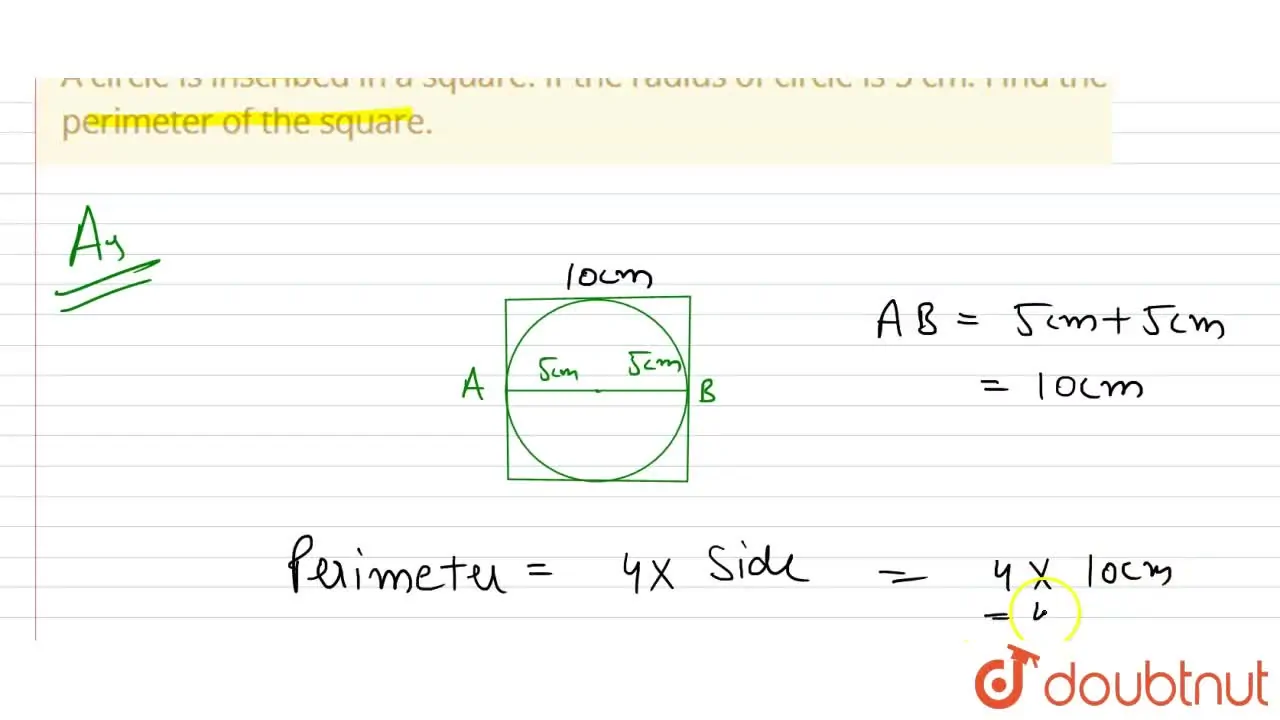 A circle is inscribed in a square. If the radius of circle is 5 cm. Find the
perimeter of the square.
Ans
10cm
A B = 5cm + 5cm
5cm 5cm
A B
= 10cm
Perimeter = 4 x Side = 4 x 10cm
= 4
doubtnut